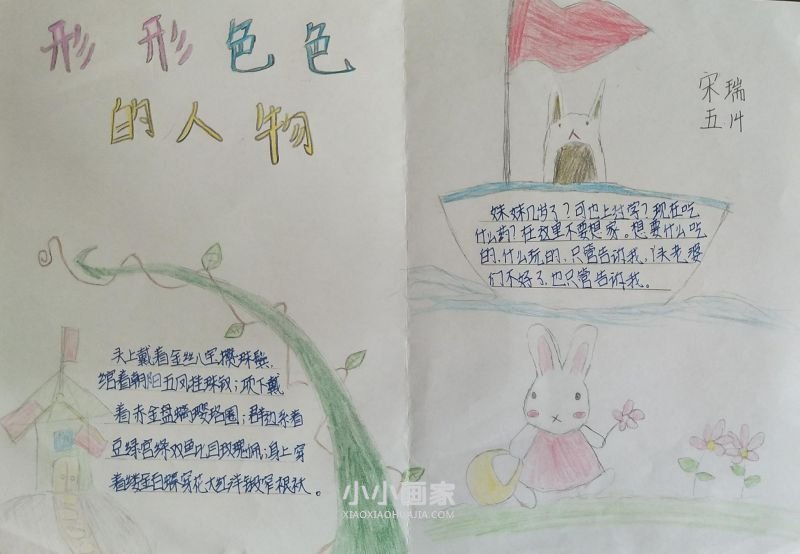 形形色色
的人物
头上戴着金丝八宝攒珠髻,
绾着朝阳五凤挂珠钗;项下戴
着赤金盘螭璎珞圈;裙边系着
豆绿宫绿双鱼比目玫瑰佩;身上穿
着缕金白蝶穿花大红洋缎窄根袄。
宋瑞
五
妹妹几岁了?可也上过学?现在吃
什么药?在这里不要想家。想要什么吃
的、什么玩的,只管告诉我,丫头老婆
们不好了,也只管告诉我。
小小画家
XIAOXIAOHUAJIA.COM